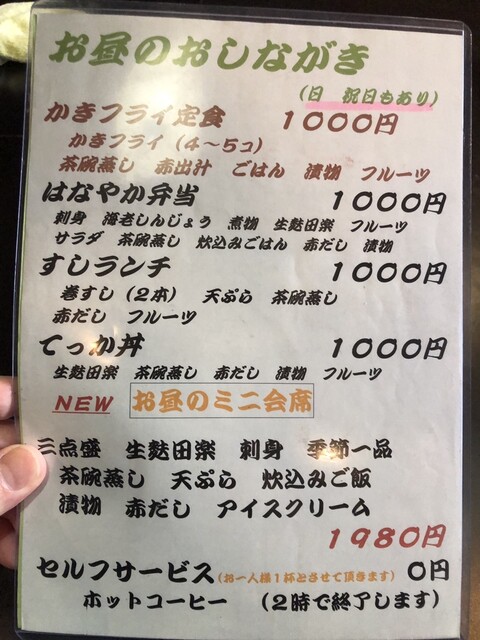 お昼のおしながき
(日 祝日もあり)
かきフライ定食 1000円
かきフライ(4〜5コ)
茶碗蒸し 赤出汁 ごはん 漬物 フルーツ
はなやか弁当 1000円
刺身 海老しんじょう 煮物 生麩田楽 フルーツ
サラダ 茶碗蒸し 炊込みごはん 赤だし 漬物
すしランチ 1000円
巻すし(2本) 天ぷら 茶碗蒸し
赤だし フルーツ
てっか丼 1000円
生麩田楽 茶碗蒸し 赤だし 漬物 フルーツ
NEW お昼のミニ会席
三点盛 生麩田楽 刺身 季節一品
茶碗蒸し 天ぷら 炊込みご飯
漬物 赤だし アイスクリーム
1980円
セルフサービス(お一人様1杯とさせて頂きます) 0円
ホットコーヒー (2時で終了します)